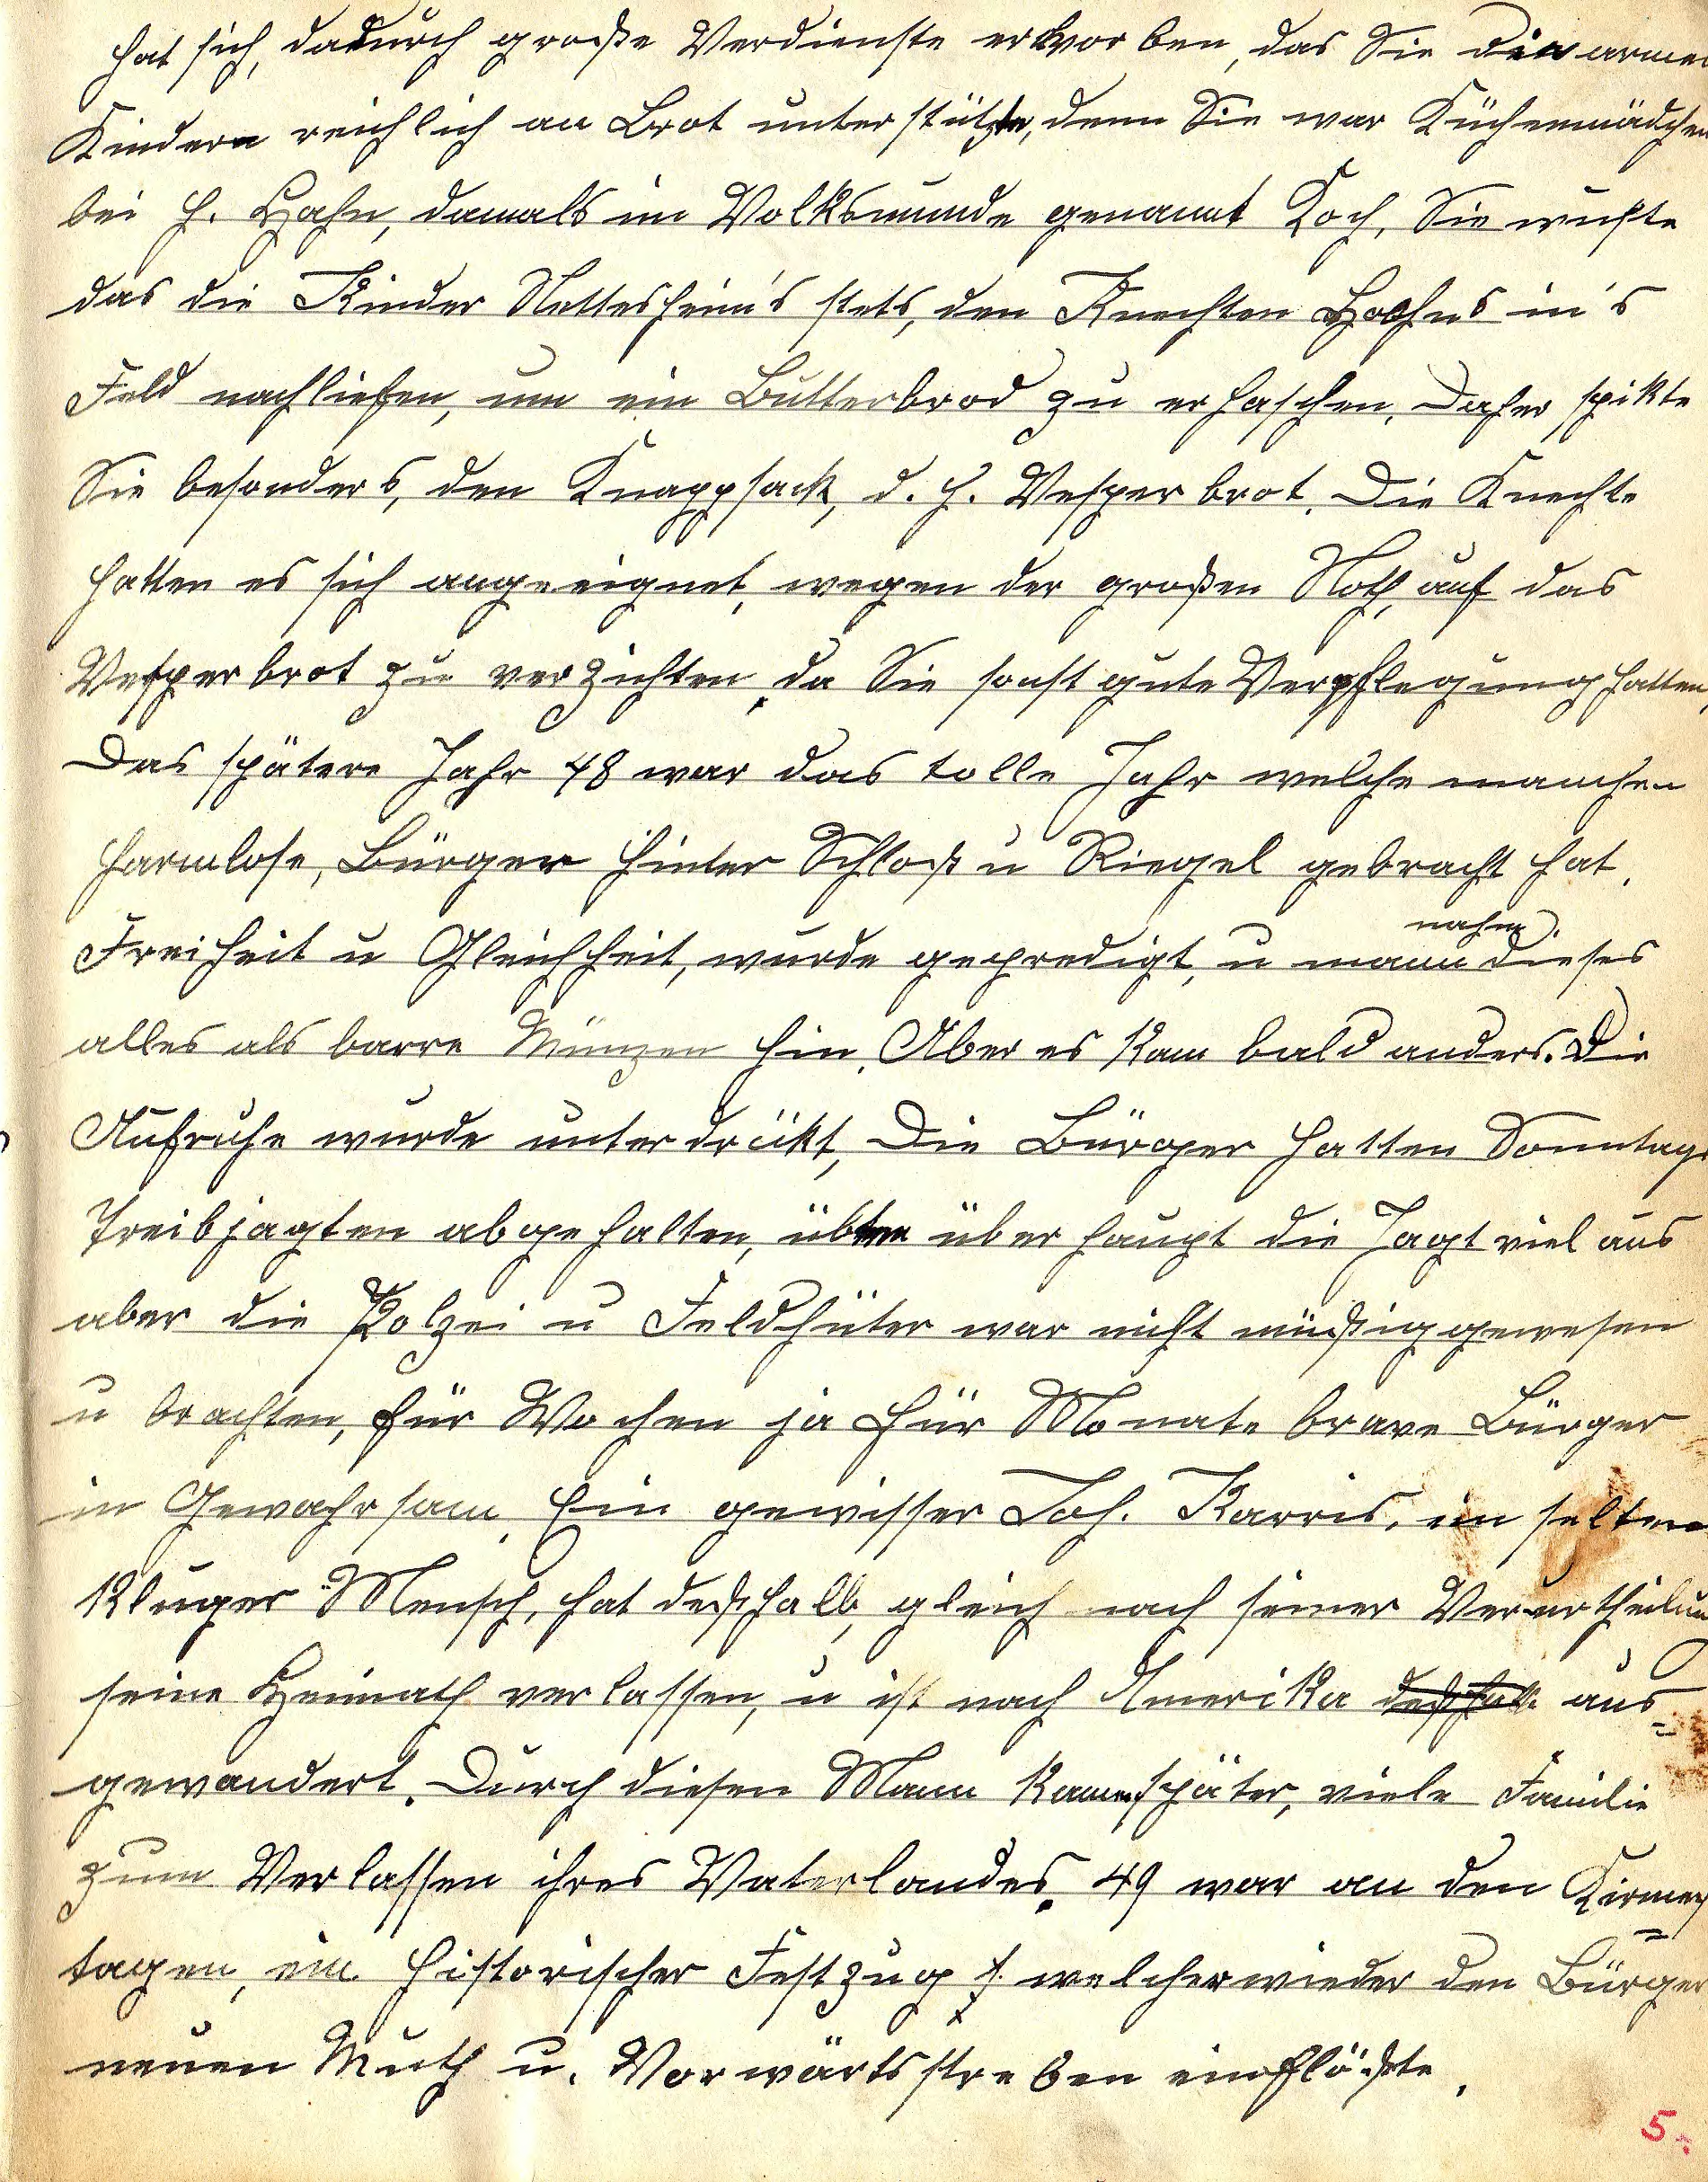 hat sich, dadurch große Verdienste erworben, das Sie den armen
Kindern reichlich an Brot unterstützte, denn Sie war Küchenmädchen
bei H. Hahn, damals im Volksmunde genannt Koch, Sie wußte
das die Kinder Nettesheim's stets, den Knechten Hahns in's
Feld nachliefen, um ein Butterbrod zu erhaschen, Daher spikte
Sie besonders, den Knappsack, d. h. Vesperbrot. Die Knechte
hatten es sich angeeignet, wegen der großen Noth, auf das
Vesperbrot zu verzichten, da Sie sonst gute Verpflegung hatten,
Das spätere Jahr 48 war das tolle Jahr welche manchen
harmlose, Bürger hinter Schloß u Riegel gebracht hat,
nahm
Freiheit u Gleichheit, wurde gepredigt, u mann dieses
alles als barre Münzen hin, Aber es kam bald anders. Die
Aufruhe wurde unterdrükt, Die Bürger hatten Sonntags
Treibjagten abgehalten, übten überhaupt die Jagt viel aus
aber die Polzei u Feldhüter war nicht müßiggewesen
u brachten, für Wochen ja für Monate brave Bürger
in Gewahrsam, Ein gewisser Joh. Karris, im selten
kluger Mensch, hat deßhalb, gleich nach seiner Verurtheilun
seine Heimath verlassen, u ist nach Amerika deßhalb aus=
gewandert. Durch diesen Mann kamen später, viele Familie
zum Verlassen ihres Vaterlandes, 49 war an den Kirmes=
tagen, ein historischer Festzug, welcher wieder den Bürger
neuen Muth u. Vorwärtsstreben einflößte.
5.